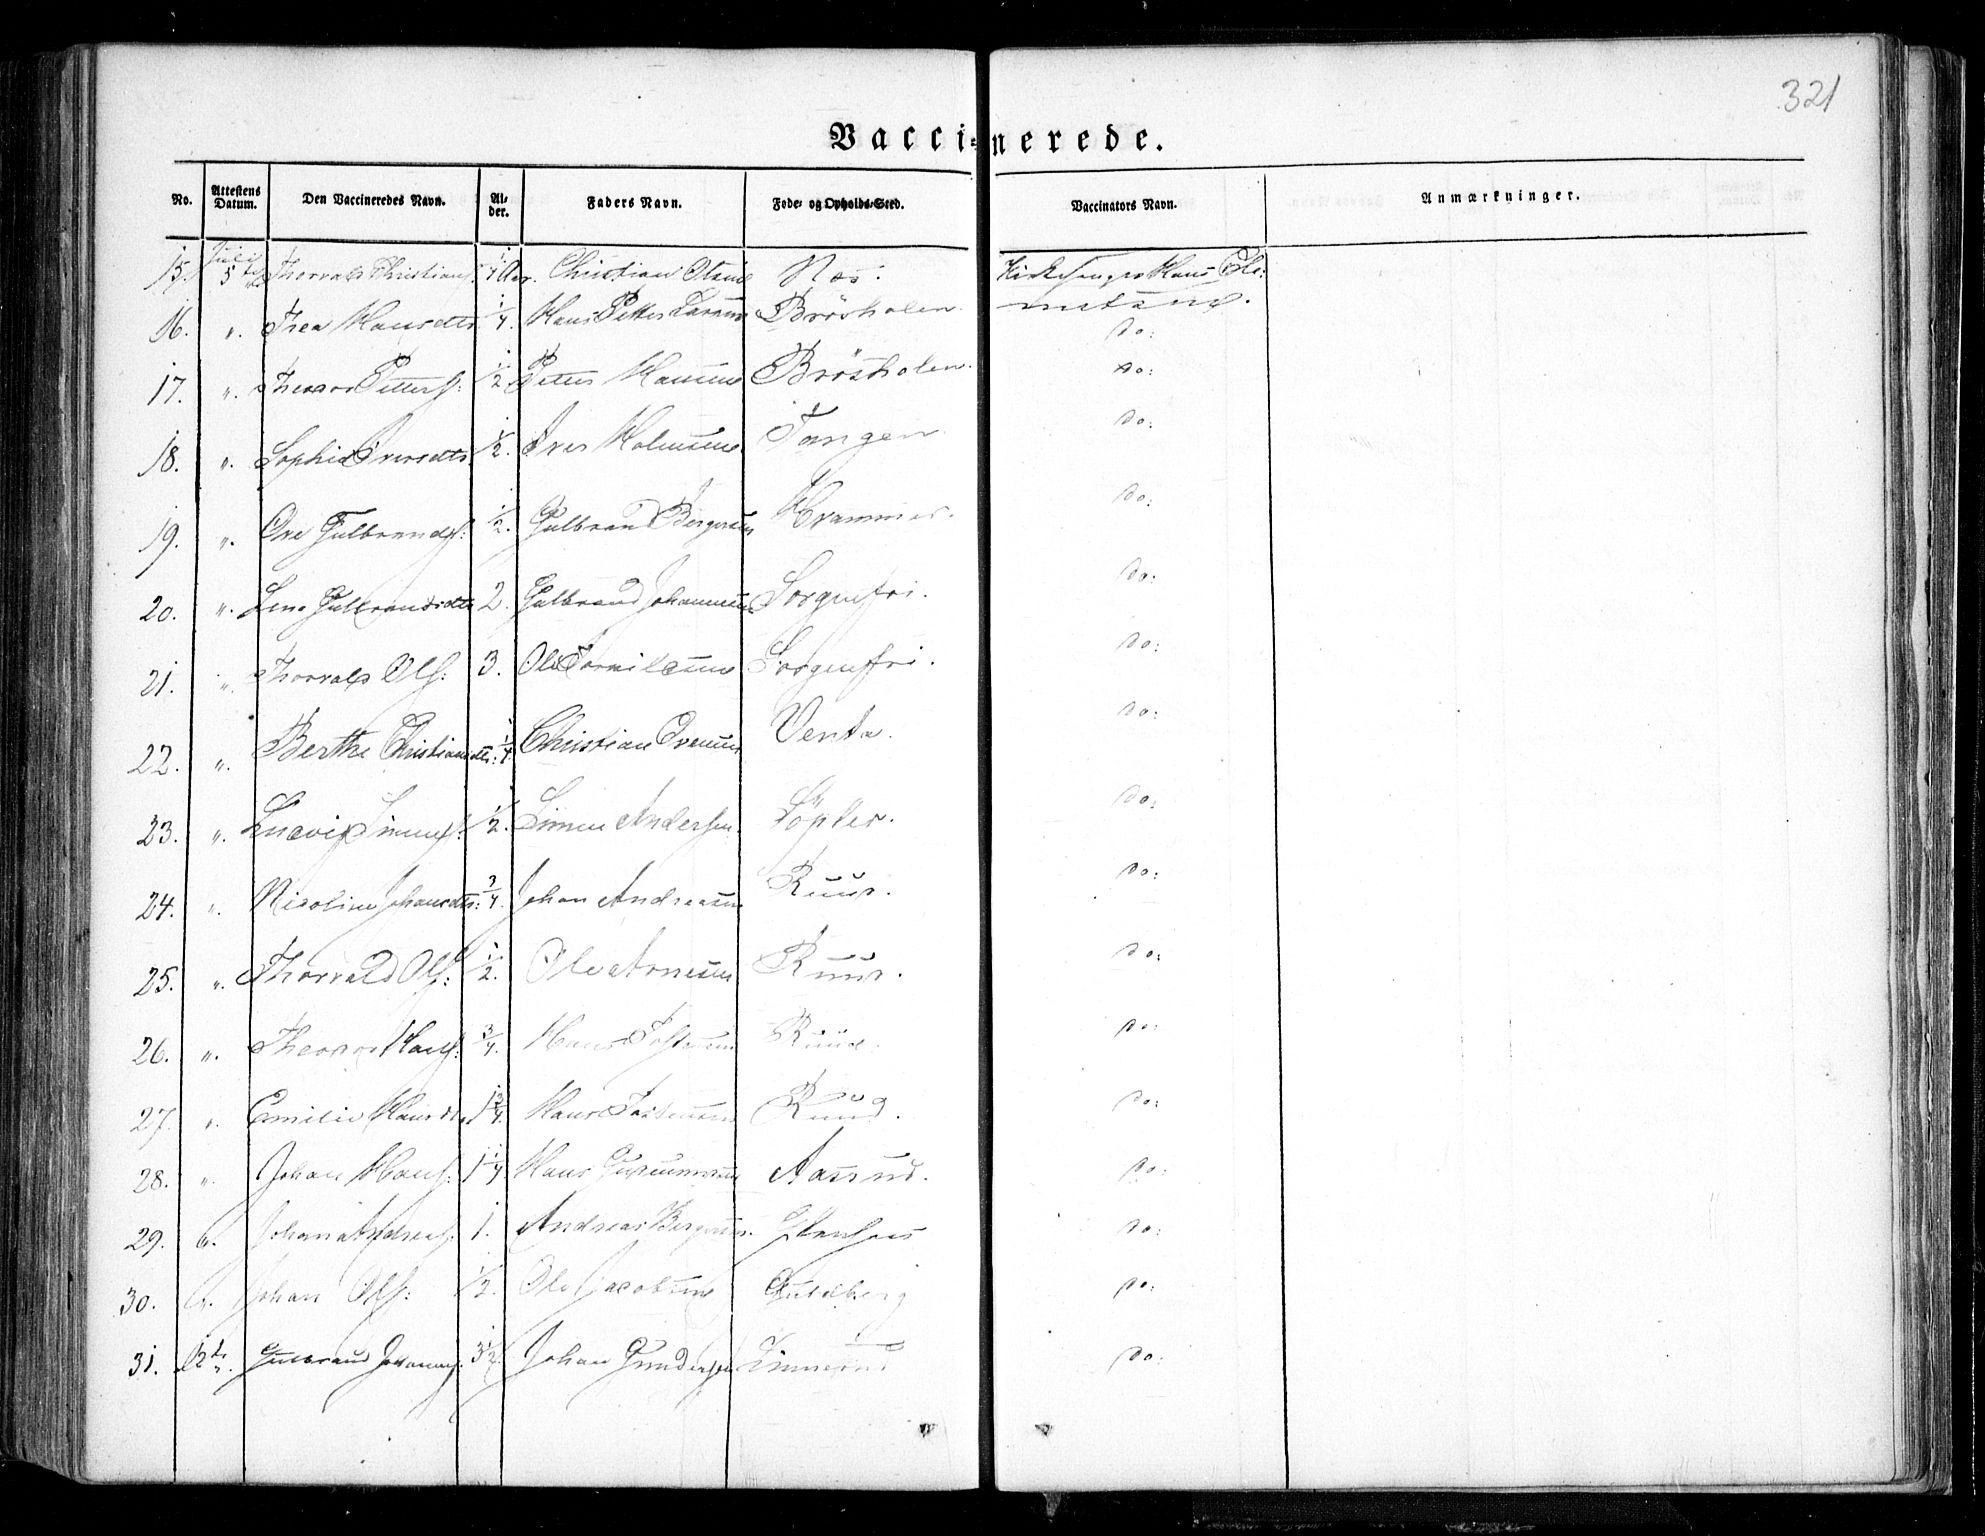 321
Vaccinerede.
No. Attestens Datum. Den Vaccineredes Navn. Alder. Faders Navn. Føde- og Opholds-Sted. Vaccinators Navn. Anmærkninger.
15. Juli 5te Thorvald Christians: 1/4 Aar. Christian Olsen Næs: Kirkesanger Hans Cle:
metsen.
16. ". Thea Hansdtr 1/4. Hans Petter Brösholen. do:
17. ". Theodor Petters: 1/2 Petter Hansen Brösholen. do:
18. ". Sophie Iversdtr. 1/2. Iver Holmsen Tangen do:
19. ". Ole Gulbrands: 1/2. Gulbrand Bergersen Hrammer. do:
20. ". Lene Gulbrandsdtr 2. Gulbrand Johannesen Sorgenfri. do:
21. ". Thorvald Ols: 3. Ole Sorgenfri. do:
22. ". Berthe Christiansdtr: 1/4. Christian Evensen Venta. do:
23. ". Ludvig Simens: 1/2. Simen Andersen Söpler. do:
24. ". Nicoline Johansdtr: 3/4. Johan Andreasen Ruud. do:
25. ". Thorvald Ols: 1/2. Ole Arnesen Ruud. do:
26. ". Theodor Hans: 3/4. Hans Jostensen Ruud. do:
27. ". Emilie Hansdtr 1 3/4. Hans Jostensen Ruud. do:
28. ". Johan Hans: 1 1/4 Hans Gudmundsen Aasrud. do:
29. ". Johan Andreas: 1. Andreas Bergersen. do:
30. ". Johan Ols: 1/2. Ole Jacobsen Guldberg do:
31. 12te ". Gulbrand Johannes: 3 1/2. Johan Gundersen Linnerud do: